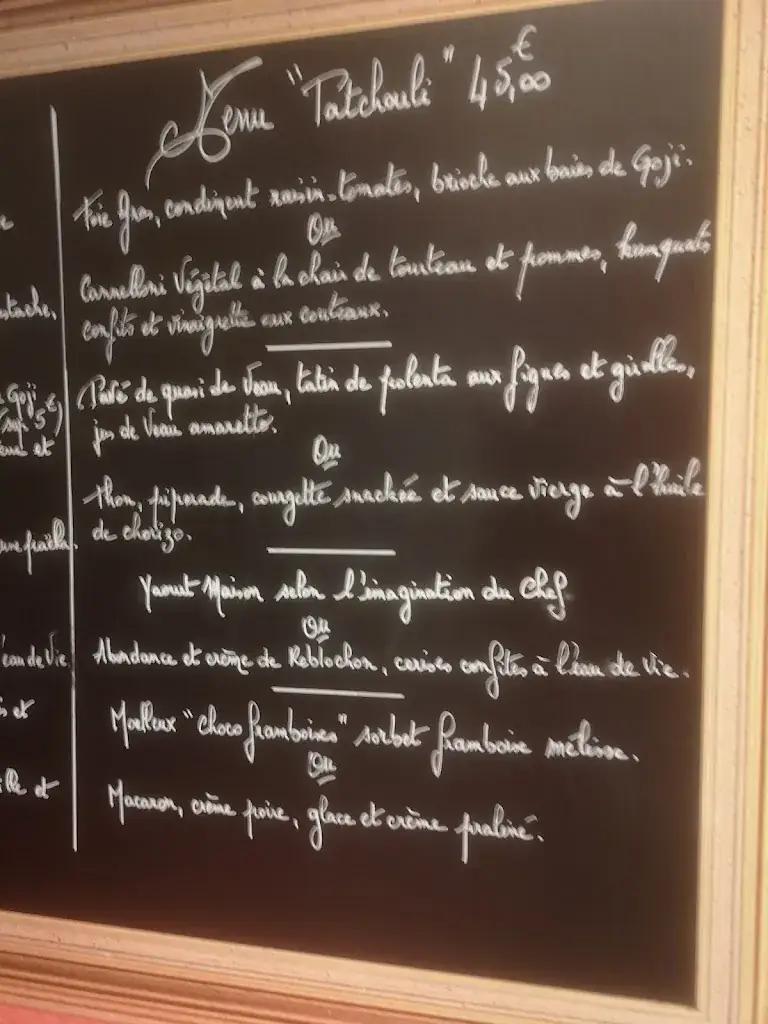 Menu "Patchouli" 45,00 €
Foie Gras, condiment raisin-tomates, brioche aux baies de Goji.
Ou
Cannelloni Végétal à la chair de tourteau et pommes, kumquats
confits et vinaigrette aux couteaux.
Pavé de quasi de Veau, tatin de polenta aux figues et girolles,
jus de Veau amaretto.
Ou
Thon, piperade, courgette snackée et sauce vierge à l'huile
de chorizo.
Yaourt Maison selon l'imagination du Chef
Ou
Abondance et crème de Reblochon, cerises confites à l'eau de vie.
Moelleux "choco framboises" sorbet framboise mélisse.
Ou
Macaron, crème poire, glace et crème praliné.
stache,
Goji
5€)
et
eau de Vie
et
et